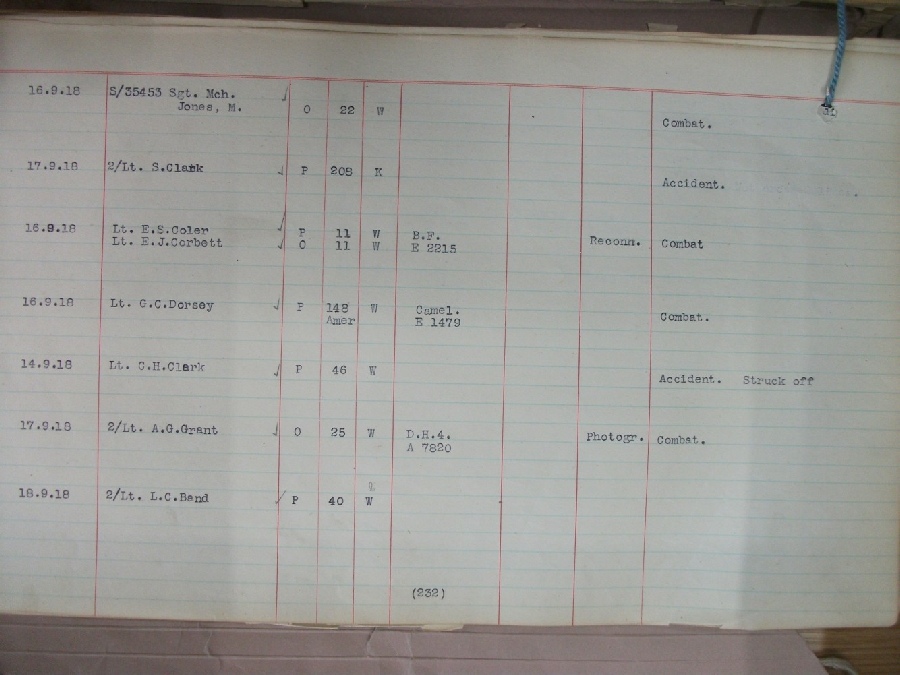 16.9.18 S/35453 Sgt. Mch.
Jones, M. O 22 W
Combat.
17.9.18 2/Lt. S.Clark P 208 K
Accident.
16.9.18 Lt. E.S.Coler P 11 W B.F.
Lt. E.J.Corbett O 11 W E 2215 Reconn. Combat
16.9.18 Lt. G.C.Dorsey P 148 W Camel.
Amer E 1479 Combat.
14.9.18 Lt. C.H.Clark P 46 W
Accident. Struck off
17.9.18 2/Lt. A.G.Grant O 25 W D.H.4. Photogr. Combat.
A 7820
18.9.18 2/Lt. L.C.Band P 40 W
(232)